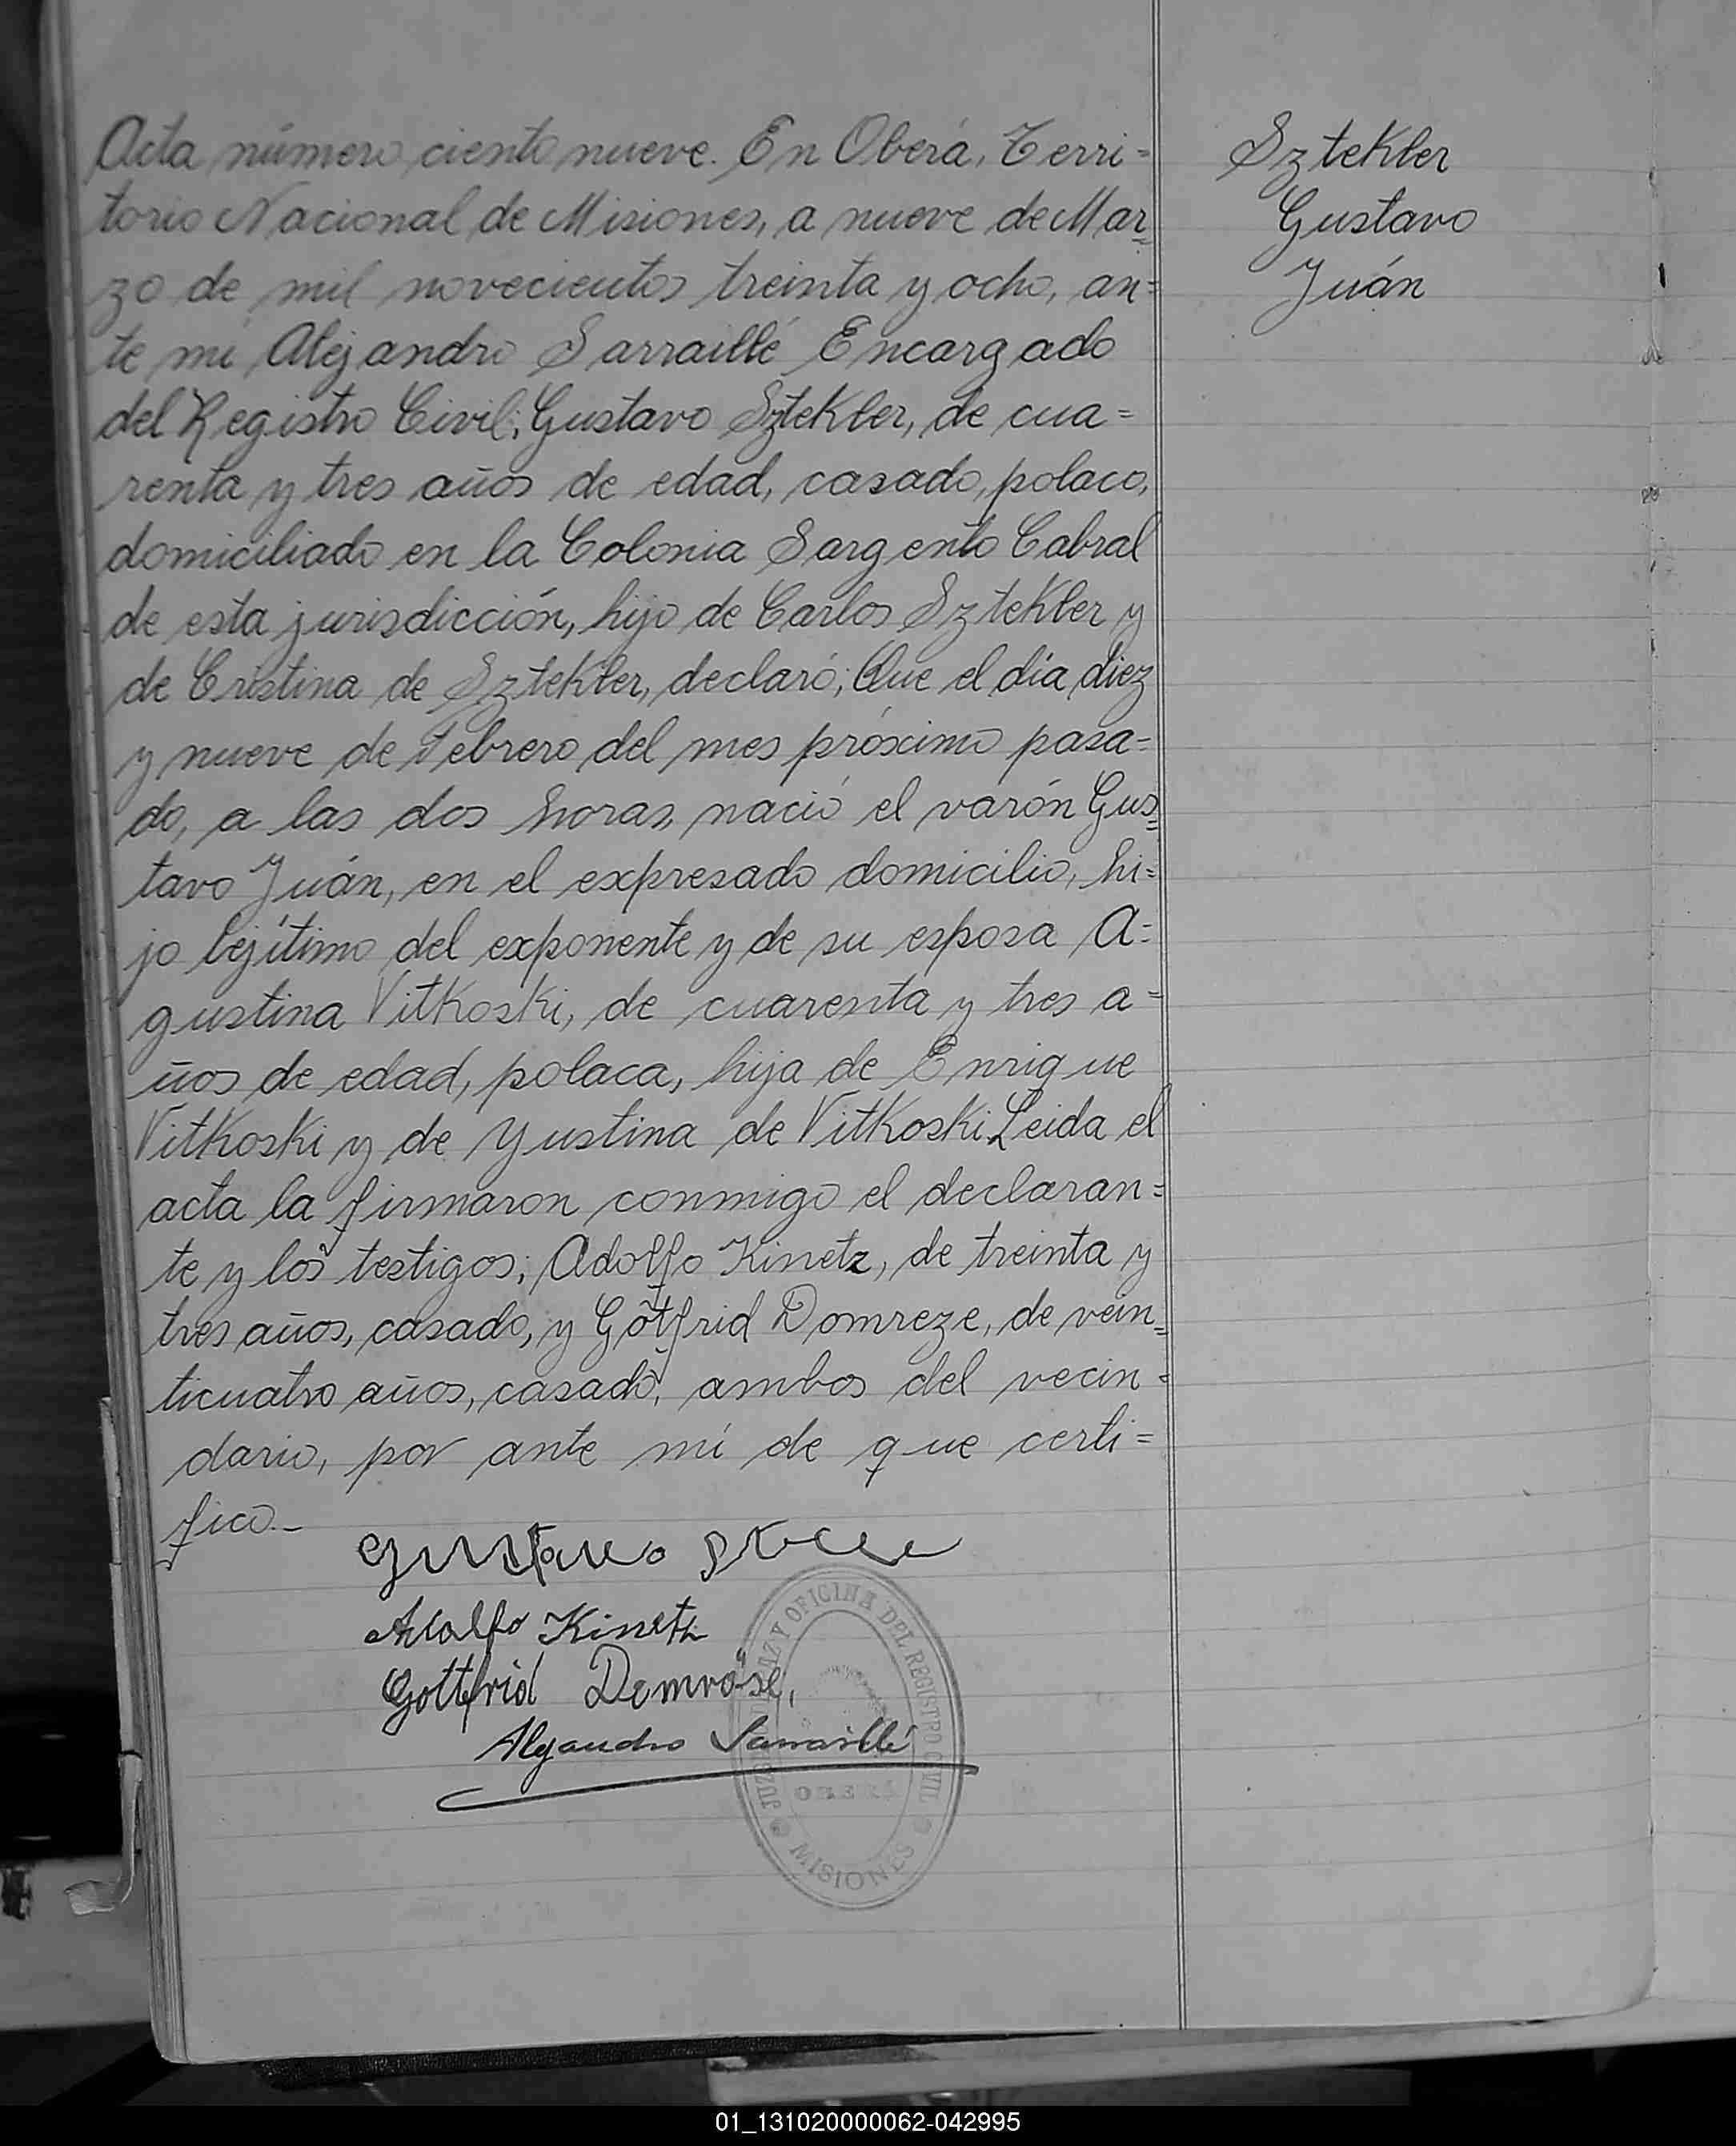 Acta número ciento nueve. En Oberá, Terri=
torio Nacional de Misiones, a nueve de Mar=
zo de mil novecientos treinta y ocho, an=
te mí Alejandro Sarraillé Encargado
del Registro Civil; Gustavo Sztekler, de cua=
renta y tres años de edad, casado, polaco,
domiciliado en la Colonia Sargento Cabral
de esta jurisdicción, hijo de Carlos Sztekler y
de Cristina de Sztekler, declaró; Que el día diez
y nueve de Febrero del mes próximo pasa=
do, a las dos horas, nació el varón Gus=
tavo Juán, en el expresado domicilio, hi=
jo lejítimo del exponente y de su esposa A=
gustina Vitkoski, de cuarenta y tres a=
ños de edad, polaca, hija de Enrique
Vitkoski y de Yustina de Vitkoski. Leida el
acta la firmaron conmigo el declaran=
te y los testigos; Adolfo Kinetz, de treinta y
tres años, casado, y Götfrid Domreze, de vein=
ticuatro años, casado, ambos del vecin=
dario, por ante mí de que certi=
fico.-
Gustavo
Adolfo Kinetz
Gottfrid Demröse,
Alejandro Sarraillé
JUZGADO DE PAZ Y OFICINA DEL REGISTRO CIVIL
OBERÁ
MISIONES
Sztekler
Gustavo
Juán
01_131020000062-042995